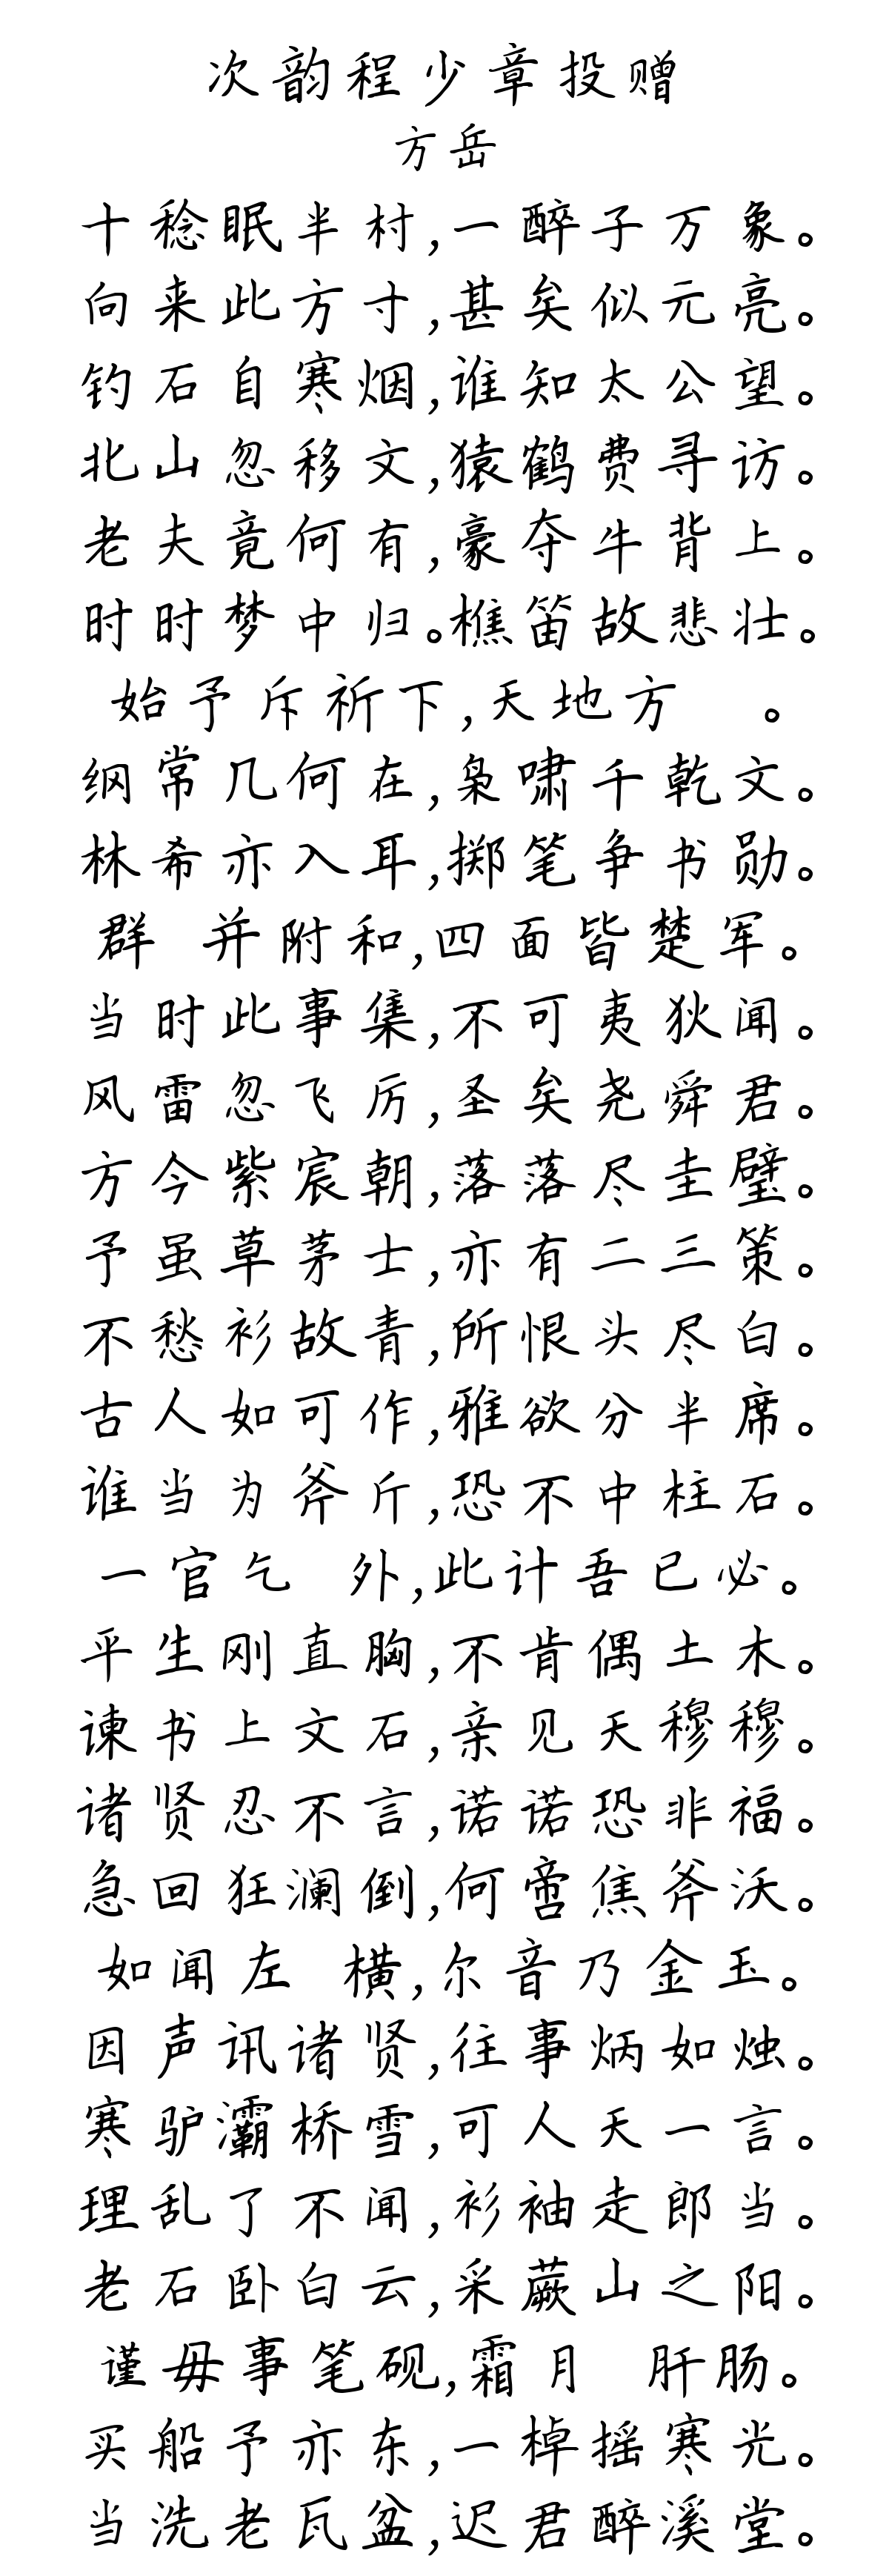 次韵程少章投赠
方岳
十稔眠半村,一醉子万象。
向来此方寸,甚矣似元亮。
钓石自寒烟,谁知太公望。
北山忽移文,猿鹤费寻访。
老夫竟何有,豪夺牛背上。
时时梦中归。樵笛故悲壮。
始予斥祈下,天地方 。
纲常几何在,枭啸千乾文。
林希亦入耳,掷笔争书勋。
群 并附和,四面皆楚军。
当时此事集,不可夷狄闻。
风雷忽飞厉,圣矣尧舜君。
方今紫宸朝,落落尽圭璧。
予虽草茅士,亦有二三策。
不愁衫故青,所恨头尽白。
古人如可作,雅欲分半席。
谁当为斧斤,恐不中柱石。
一官乞 外,此计吾已必。
平生刚直胸,不肯偶土木。
谏书上文石,亲见天穆穆。
诸贤忍不言,诺诺恐非福。
急回狂澜倒,何啻焦斧沃。
如闻左 横,尔音乃金玉。
因声讯诸贤,往事炳如烛。
寒驴灞桥雪,可人天一言。
理乱了不闻,衫袖走郎当。
老石卧白云,采蕨山之阳。
谨毋事笔砚,霜月 肝肠。
买船予亦东,一棹摇寒光。
当洗老瓦盆,迟君醉溪堂。